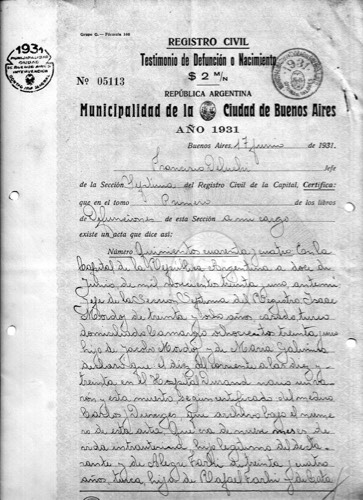 Grupo G. - Fórmula 102
REGISTRO CIVIL
Testimonio de Defunción o Nacimiento
$ 2 M/N
1931
MUNICIPALIDAD
CIUDAD
DE BUENOS AIRES
INTERVENCION
1931
Nº 05113
REPÚBLICA ARGENTINA
Municipalidad de la Ciudad de Buenos Aires
AÑO 1931
Buenos Aires, 17 junio de 1931.
Jefe
de la Sección Septima del Registro Civil de la Capital, Certifica:
que en el tomo Primero de los libros
de Defunciones de esta Sección a mi cargo
existe un acta que dice así:
Número Quinientos cuarenta y cuatro En la
Capital de la Republica Argentina a doce de
Julio de mil novecientos treinta y uno, ante mi
Jefe de la Seccion Septima del Registro Isaac
de treinta y ocho años, casado turco
domiciliado Camargo Novecientos treinta y uno
hijo de Jacobo y de Maria
declaró que el diez del corriente a las diez y
treinta en el Hospital Durand nacio un va
ron y esta muerto segun certificado del medico
Carlos que archivo bajo el nume
ro de esta acta. Que era de nueve meses de
vida intrauterina hijo legitimo del decla
rante y de Alegre de treinta y cuatro
años, turca, hija de Rafael y de